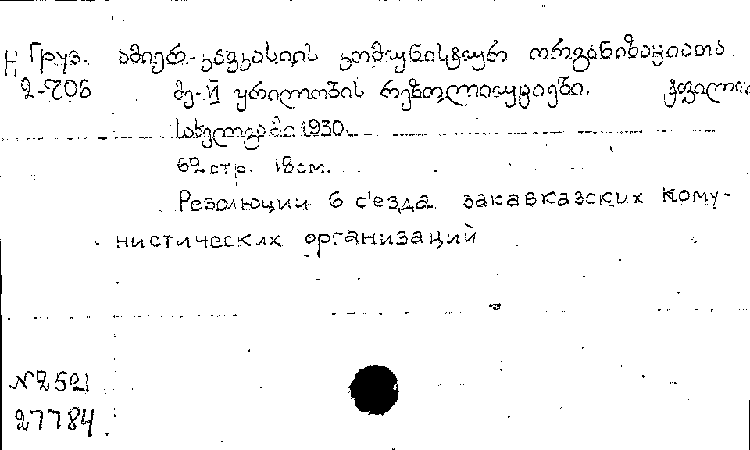 Груз. ამიერ-კავკასიის კომუნისტურ ორგანიზაციათა
2-706 მე-VI ყრილობის რეზოლიუციები.
სახელგამი 1930.
62 стр. 18 см.
Резолюции 6 с'езда закавказских кому-
нистических организаций
№2521
27784